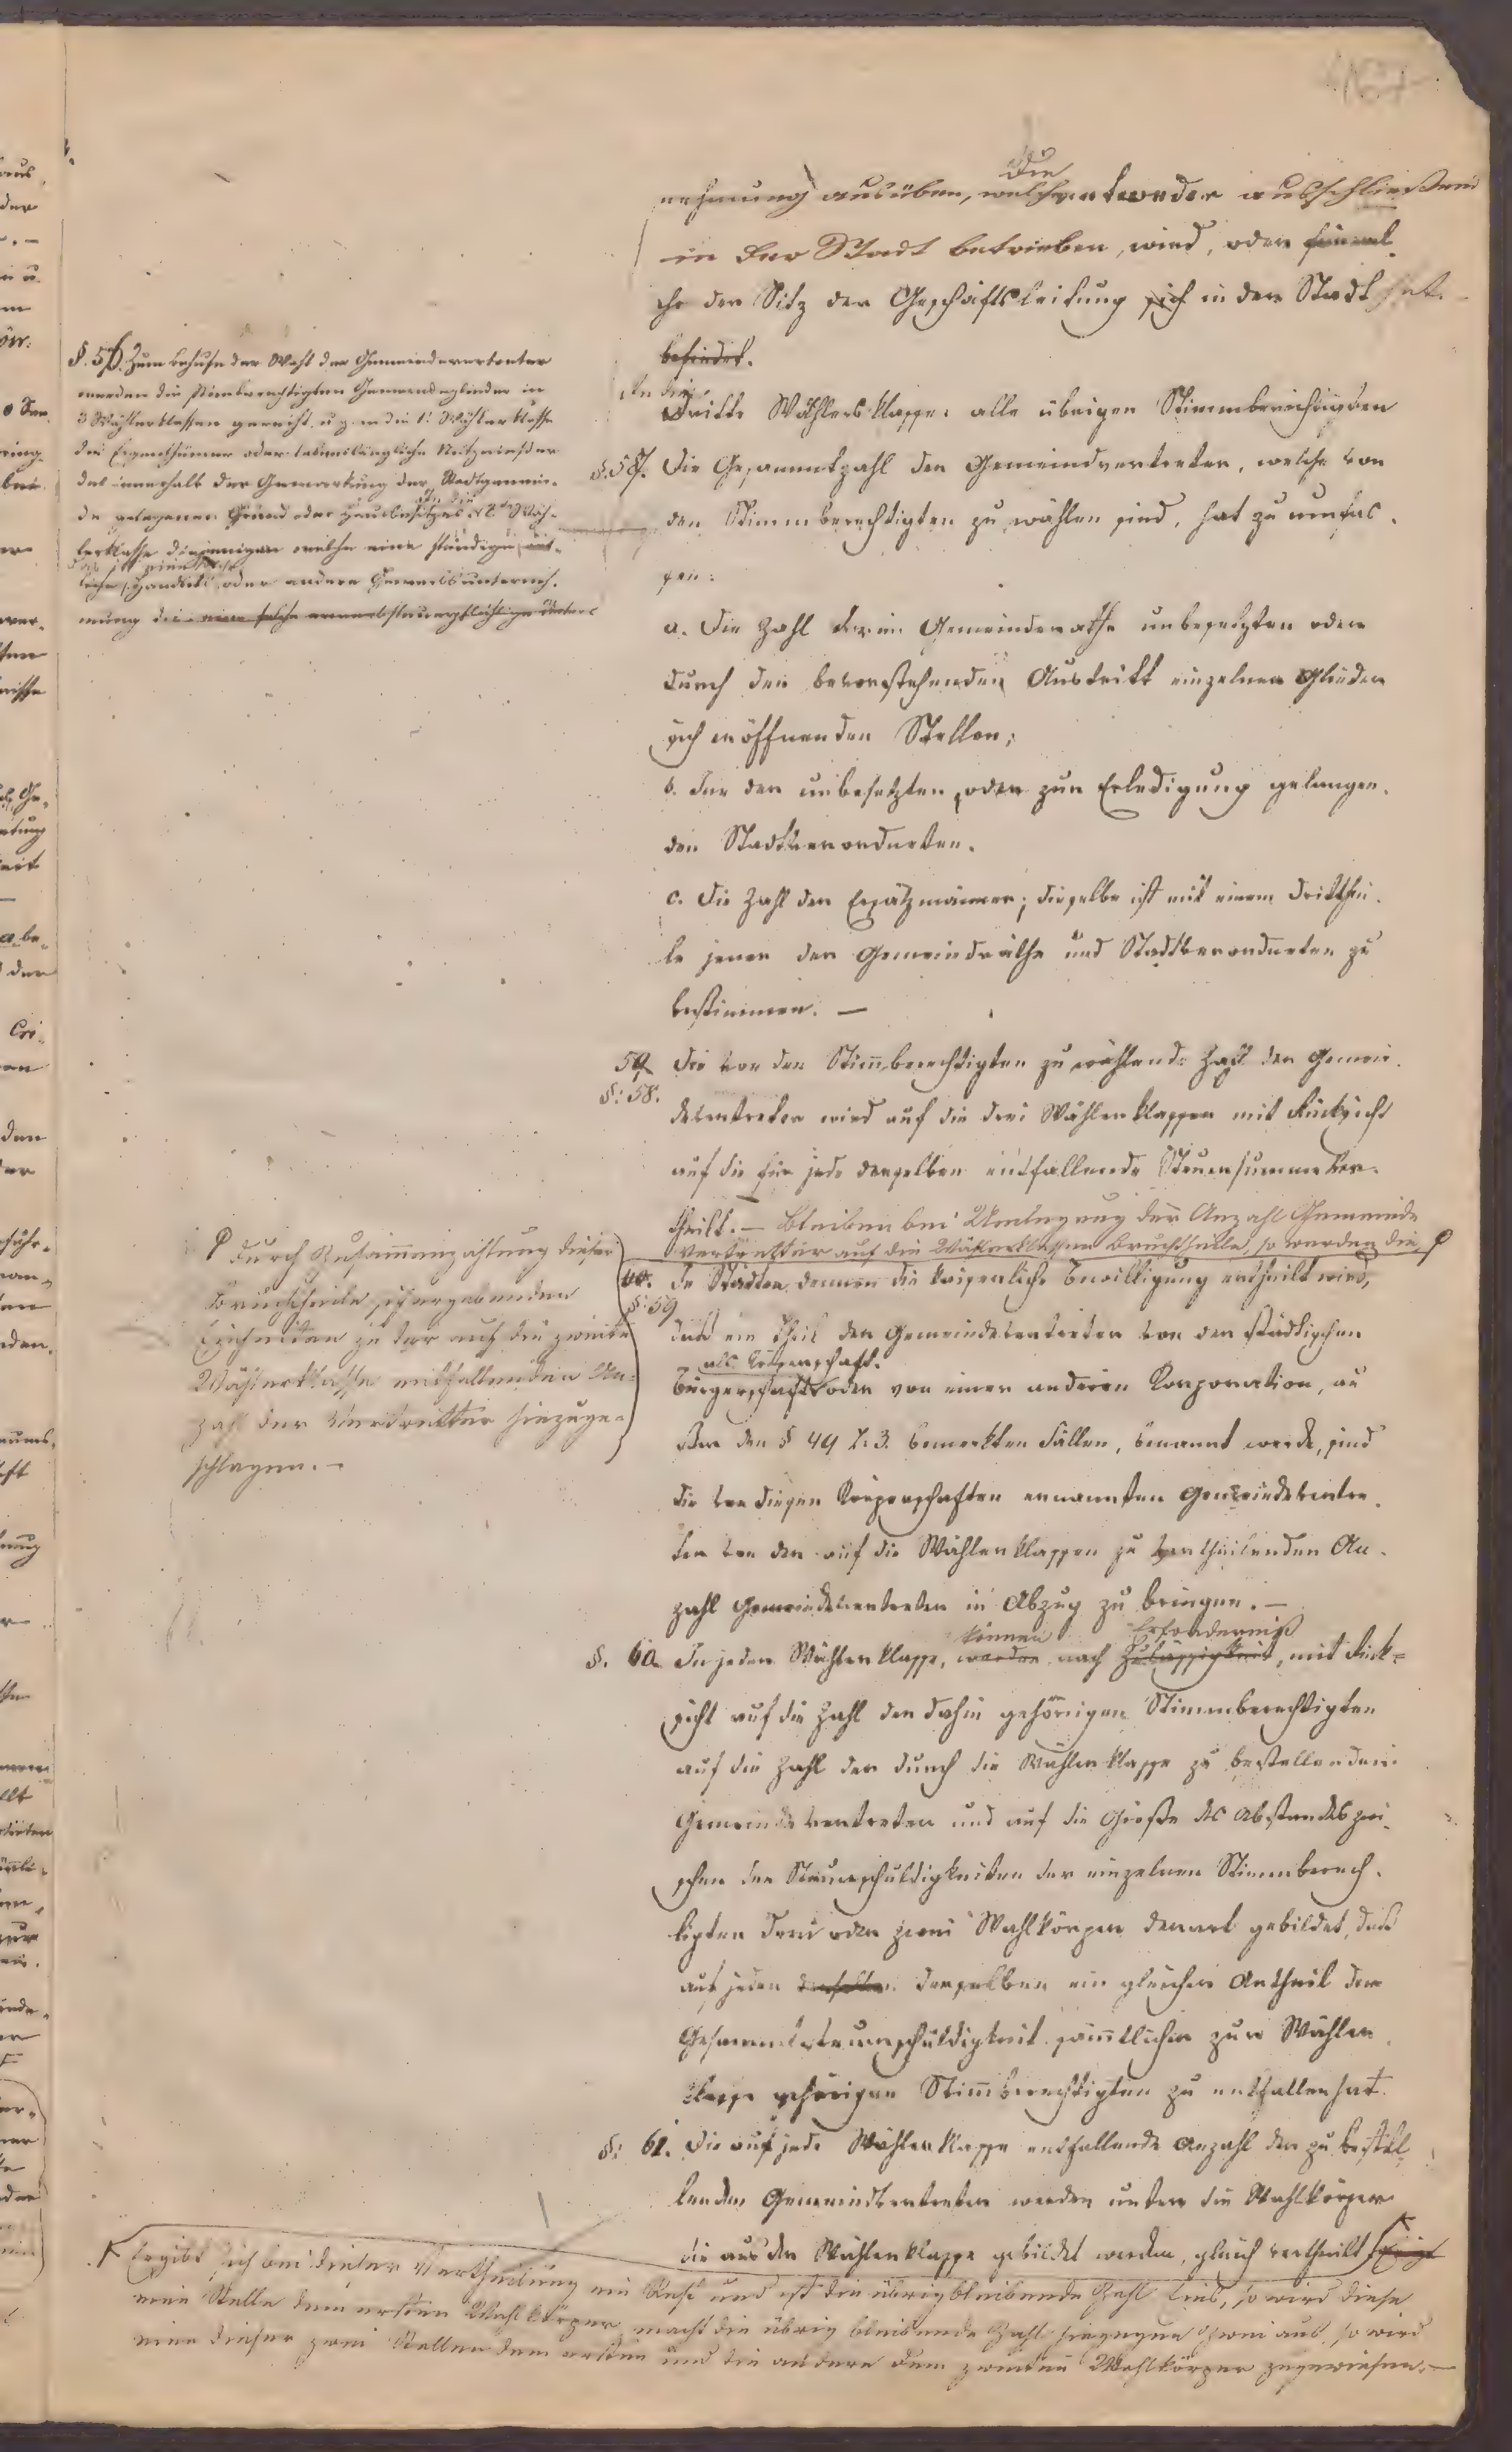 §. 56. Zum Behufe der Wahl der Gemeindevertreter
werden die stimmberechtigten Gemeindeglieder in
3 Wählerklassen gereiht, u. z. in die 1. Wählerklasse
die Eigenthümer oder lebenslänglichen Nutznießer
des innerhalb der Gemarkung der Stadtgemein-
de gelegenen Grund oder Hausbesitzes, in die 2te Wäh-
lerklasse diejenigen welche eine ständige
Handels oder andere Erwerbsunterneh-
mung die eine solche erwerbsteuerpflichtige Unter-
nehmung ausüben, welche entweder ausschließend
die
in der Stadt betrieben, wird, oder
che der Sitz der Geschäftsleitung sich in der Stadt hat.
befindet.
In die
dritte Wählersklasse: alle übrigen Stimmberechtigten
§. 57. Die Gesammtzahl der Gemeindvertreter, welche von
den Stimmberechtigten zu wählen sind, hat zu umfas-
sen:
a. Die Zahl der im Gemeinderathe unbesetzten oder
durch den bevorstehenden Austritt einzelner Glieder
sich eröffnenden Stellen;
b. der unbesetzten, oder zur Erledigung gelangen-
den Stadtverordneten.
c. Die Zahl der Ersatzmänner; dieselbe ist mit einem Dritthei-
le jener der Gemeindräthe und Stadtverordneten zu
bestimmen. —
59
§: 58. Die von den Stimmberechtigten zu wählende Zahl der Gemein-
devertreter wird auf die drei Wählerklassen mit Rücksicht
auf die für jede derselben entfallende Steuersumme ver-
theilt. — Bleiben bei Umlegung der Anzahl Gemeinde
Vertretter auf die Wählerklassen Bruchtheile, so werden die
durch Zusammenzählung dieser
Bruchtheile sich ergebenden
Einheiten zu der auf die zweite
Wählerklasse entfallenden An-
zahl der Vertretter hinzuge-
schlagen. —
60.
§: 59 In Städten, denen die kaiserliche Bewilligung ertheilt wird,
daß ein Theil der Gemeindevertreter von der städtischen
als Körperschaft.
Bürgerschaft oder von einer anderen Korporation, au
ßer den § 44 Z. 3. bemerkten Fällen, ernannt werde, sind
die von diesen Körperschaften ernannten Gemeindevertre-
ter von der auf die Wählerklassen zu vertheilenden An-
zahl Gemeindevertreter in Abzug zu bringen. —
können Erforderniß
§. 60. In jeder Wählerklasse, werden nach Zulässigkeit, mit Rück-
sicht auf die Zahl der dahin gehörigen Stimmberechtigten
auf die Zahl der durch die Wählerklasse zu bestellenden
Gemeindevertreter und auf die Größe des Abstandes zwi-
schen den Steuerschuldigkeiten der einzelnen Stimmberech-
tigten drei oder zwei Wahlkörper derart gebildet, daß
auf jeden derselben derselben ein gleicher Antheil der
Gesammtsteuerschuldigkeit sämmtlicher zur Wähler
klasse gehörigen Stimmberechtigten zu entfallen hat.
§: 61. Die auf jede Wählerklasse entfallende Anzahl der zu bestel
lenden Gemeindvertreter werden unter die Wahlkörper
die aus der Wählerklasse gebildet werden, gleich vertheilt
Ergibt sich bei dieser Vertheilung ein Rest und ist die übrig bleibende Zahl Eins, so wird diese
eine Stelle dem ersten Wahlkörper, macht die übrig bleibende Zahl hingegen zwei aus, so wird
eine dieser zwei Stellen dem ersten und die andere dem zweiten Wahlkörper zugewiesen. —